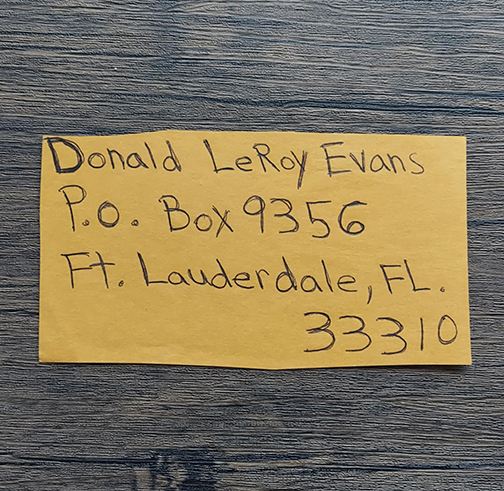 Donald LeRoy Evans
P.O. Box 9356
Ft. Lauderdale, FL.
33310